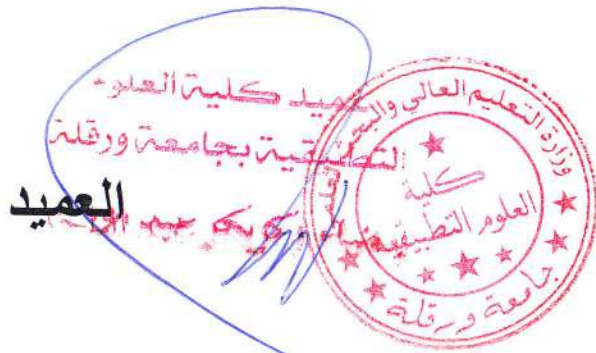 عميد كلية العلوم
التطبيقية بجامعة ورقلة
العميد
وزارة التعليم العالي والبحث
كلية
العلوم التطبيقية
جامعة ورقلة